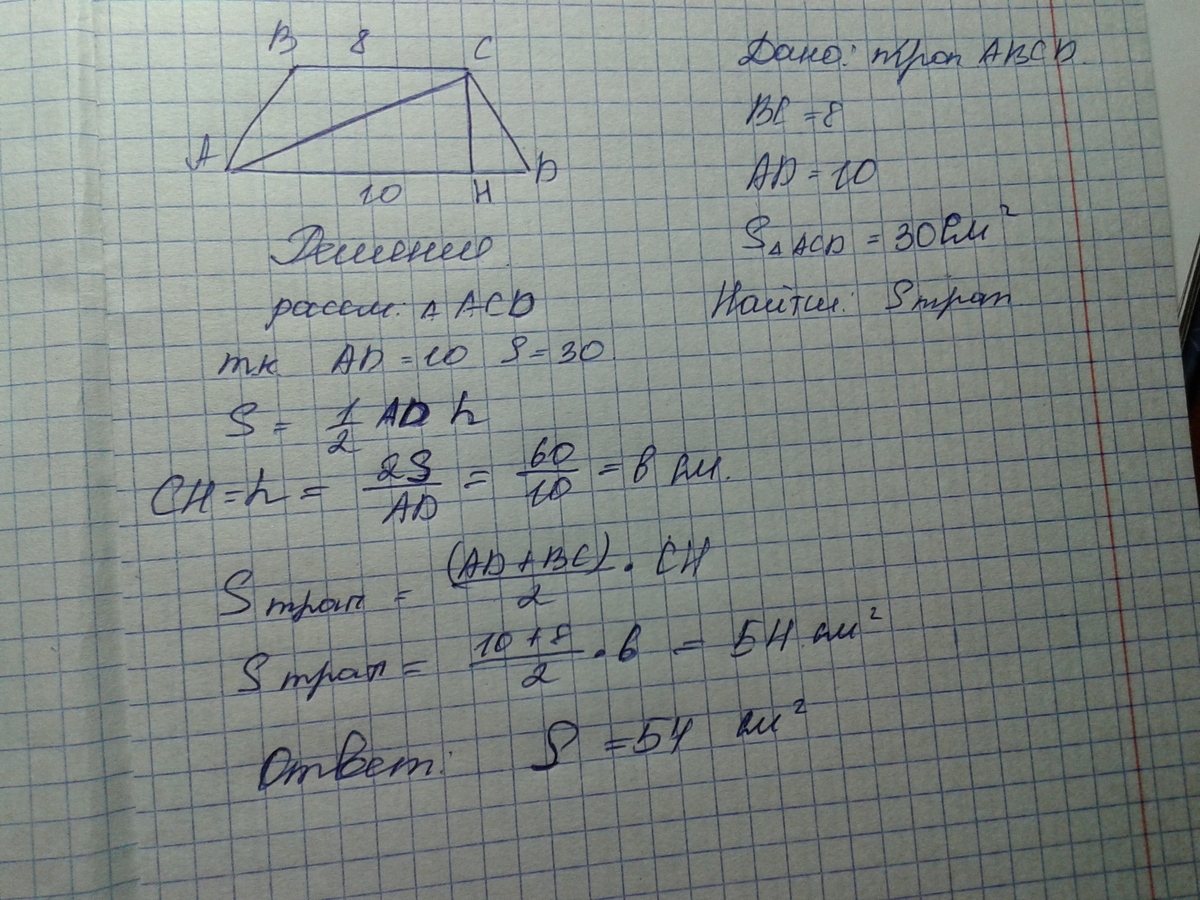 B 8 C
A D
10 H
Дано: трап ABCD.
BC = 8
AD = 10
S△ACD = 30 см²
Найти: Sтрап
Решение.
рассм: △ ACD
тк AD = 10 S = 30
S = 1/2 AD h
CH = h = 2S/AD = 60/10 = 6 см.
Sтрап = (AD + BC)/2 · CH
Sтрап = 10 + 8/2 · 6 = 54 см²
Ответ: S = 54 см²